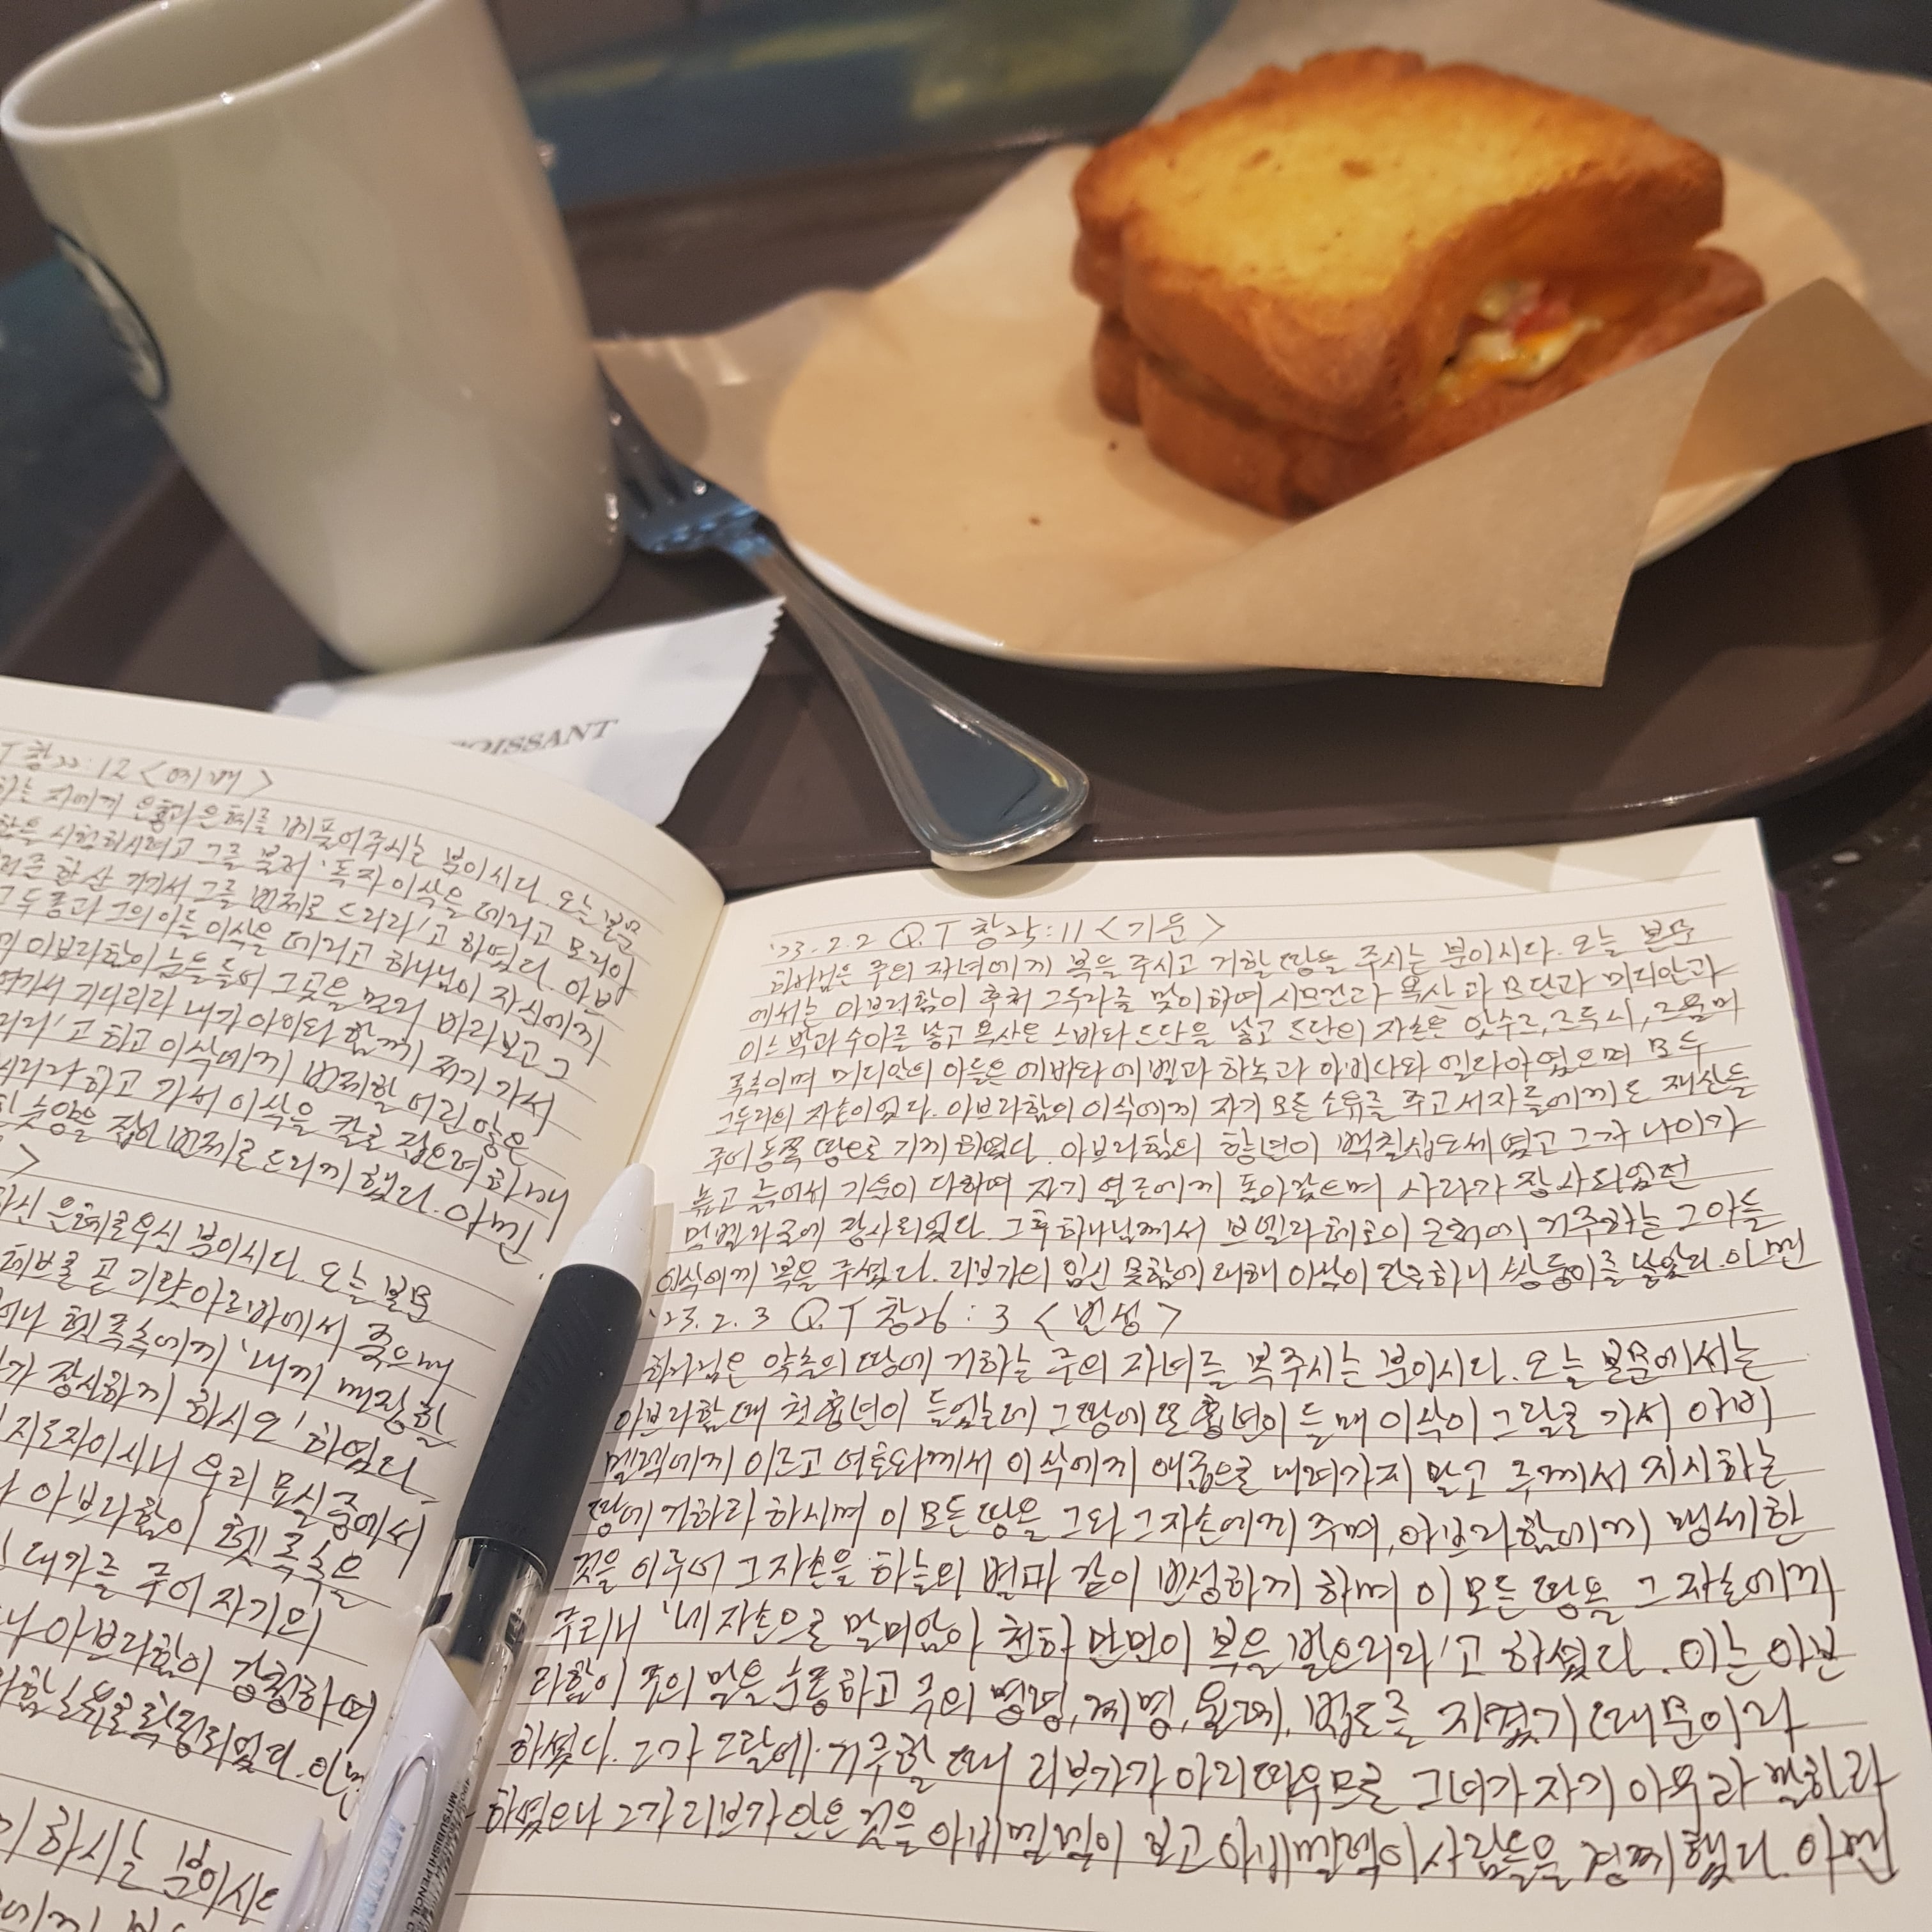 OISSANT
T 창22:12 <예배>
하는 자에게 은총과 은혜를 베풀어주시는 분이시다. 오늘 본문
함을 시험하시려고 그를 불러 '독자 이삭을 데리고 모리아
려준 한 산 거기서 그를 번제로 드리라'고 하셨다. 아브
그 두 종과 그의 아들 이삭을 데리고 하나님이 자신에게
에 아브라함이 눈을 들어 그곳을 멀리 바라보고 그
여기서 기다리라 내가 아이와 함께 저기 가서
리라'고 하고 이삭에게 번제할 어린 양은
시리라 하고 가서 이삭을 칼로 잡으려 하매
린 숫양을 잡아 번제로 드리게 했다. 아멘
>
하신 은혜로우신 분이시다. 오늘 본문
헤브론 곧 기럇아르바에서 죽으매
어나 헷 족속에게 '내게 매장할
가 장사하게 하시오' 하였다.
지도자이시니 우리 묘실 중에서
아브라함이 헷 족속은
대가를 주어 자기의
나 아브라함이 강청하여
확정되었다. 아멘
하시는 분이시다
'23.2.2 Q.T 창25:11 <기둔>
하나님은 주의 자녀에게 복을 주시고 거할 땅을 주시는 분이시다. 오늘 본문
에서는 아브라함이 후처 그두라를 맞이하여 시므란과 욕산과 므단과 미디안과
이스박과 수아를 낳고 욕산은 스바와 드단을 낳고 드단의 자손은 앗수르, 르두시, 르움미
족속이며 미디안의 아들은 에바와 에벨과 하녹과 아비다와 엘다아였으며 모두
그두라의 자손이었다. 아브라함이 이삭에게 자기 모든 소유를 주고 서자들에게는 재산을
주어 동쪽 땅으로 가게 하였다. 아브라함의 향년이 백칠십오세였고 그가 나이가
높고 늙어서 기운이 다하여 자기 열조에게 돌아갔으며 사라가 장사되었던
막벨라굴에 장사되었다. 그 후 하나님께서 브엘라해로이 근처에 거주하는 그 아들
이삭에게 복을 주셨다. 리브가의 임신 못함에 대해 이삭이 간구하니 쌍둥이를 낳았다. 아멘
'23.2.3 Q.T 창26:3 <번성>
하나님은 약속의 땅에 거하는 주의 자녀를 복주시는 분이시다. 오늘 본문에서는
아브라함 때 첫 흉년이 들었는데 그 땅에 또 흉년이 들매 이삭이 그랄로 가서 아비
멜렉에게 이르고 여호와께서 이삭에게 애굽으로 내려가지 말고 주께서 지시하는
땅에 거하라 하시며 이 모든 땅을 그와 그 자손에게 주며, 아브라함에게 맹세한
것을 이루어 그 자손을 하늘의 별과 같이 번성하게 하며 이 모든 땅을 그 자손에게
주리니 '네 자손으로 말미암아 천하 만민이 복을 받으리라'고 하셨다. 이는 아브
라함이 주의 말을 순종하고 주의 명령, 계명, 율례, 법도를 지켰기 때문이라
하셨다. 그가 그랄에 거주할 때 리브가가 아리따우므로 그녀가 자기 아우라 말하라
하였으나 그가 리브가 안은 것을 아비멜렉이 보고 아비멜렉이 사람들을 경계했다. 아멘
MITSUBISHI PENCIL